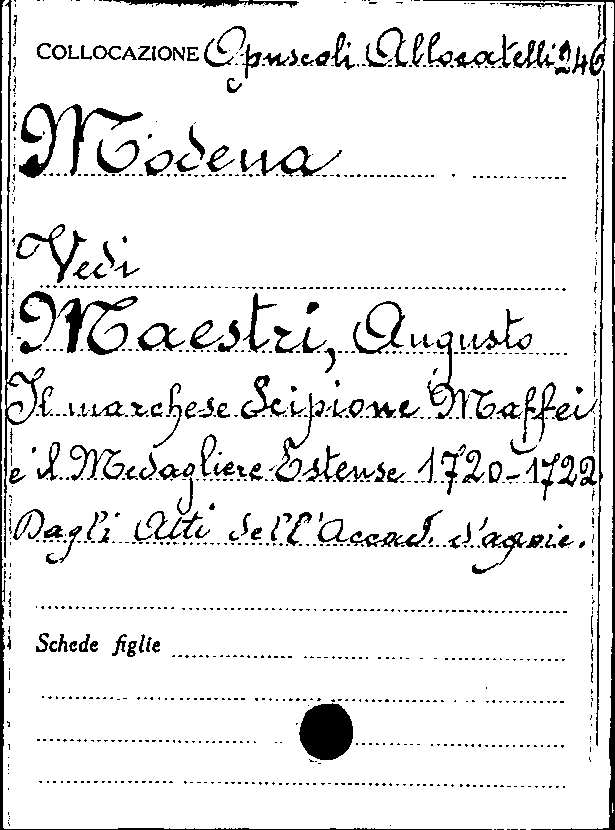 COLLOCAZIONE Opuscoli Allocatelli 246
Modena
Vedi
Maestri, Augusto
Il marchese Scipione Maffei
e il Medagliere Estense 1720-1722
Dagli Atti dell'Accad. d'agric.
Schede figlie